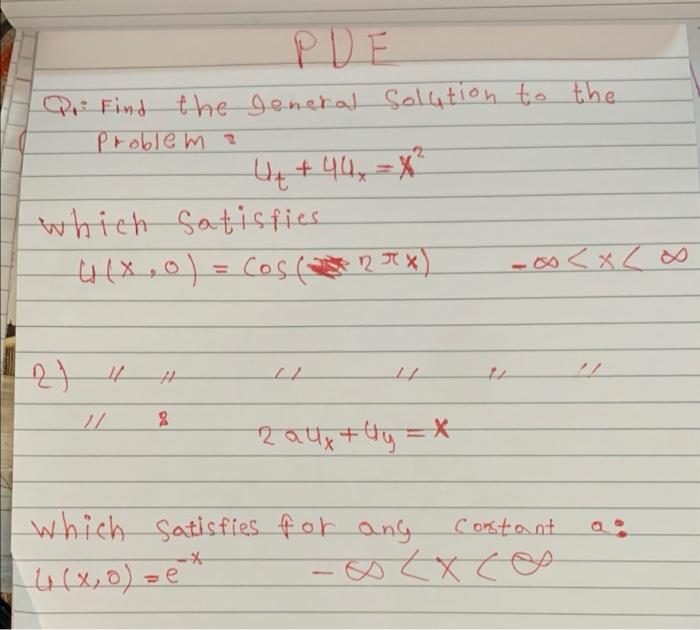 PDE
Q1: Find the general solution to the
problem:
u_t + 4u_x = x²
which satisfies
u(x,0) = cos(2πx)   -∞ < x < ∞
2) " " " " " "
" :
2au_x + u_y = x
which satisfies for any constant a:
u(x,0) = e^-x   -∞ < x < ∞